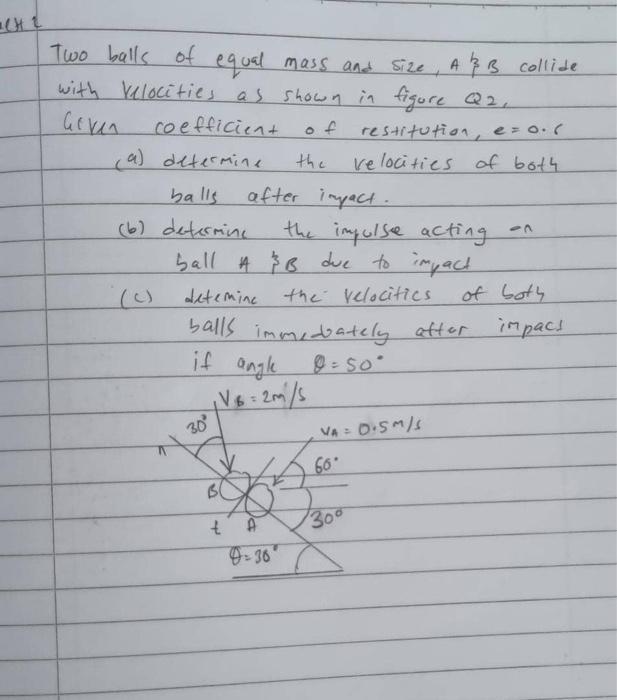 Two balls of equal mass and size, A & B collide
with velocities as shown in figure Q2,
Given coefficient of restitution, e = 0.6
(a) determine the velocities of both
balls after impact.
(b) determine the impulse acting on
ball A & B due to impact
(c) detemine the velocities of both
balls immediately after impact
if angle θ = 50°
VB = 2m/s
30°
VA = 0.5m/s
n
60°
B
t
A
30°
θ = 30°